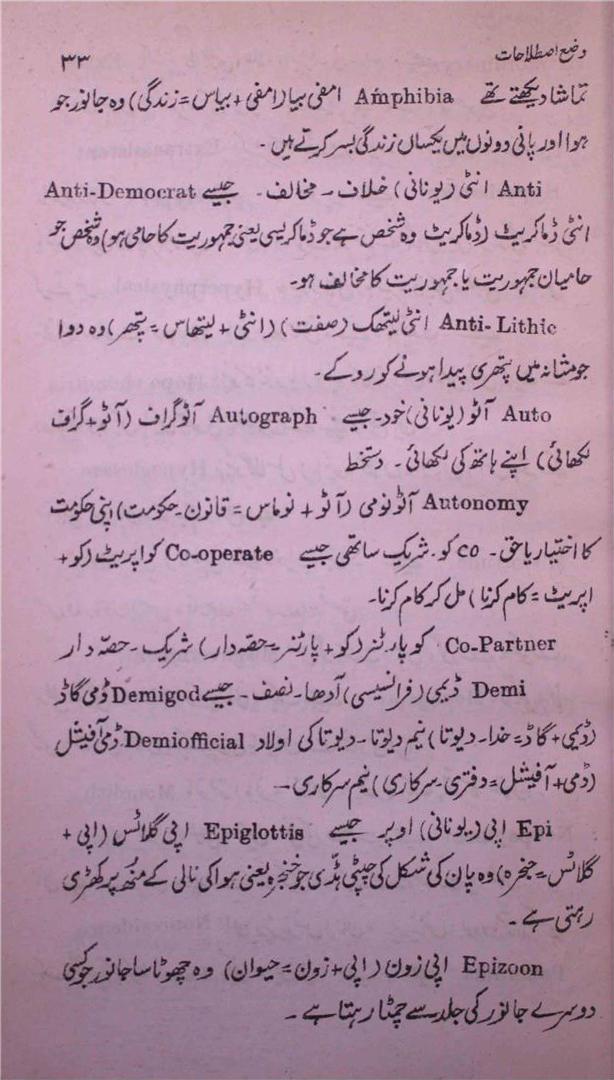 وضع اصطلاحات ۳۳
تماشا دیکھتے تھے Amphibia امفی بیا (امفی + بیاس = زندگی) وہ جانور جو
ہوا اور پانی دونوں میں یکساں زندگی بسر کرتے ہیں۔
Anti انٹی (یونانی) خلاف ۔ مخالف ۔ جیسے Anti-Democrat
انٹی ڈماکریٹ (ڈماکریٹ وہ شخص ہے جو ڈماکریسی یعنی جمہوریت کا حامی ہو) وہ شخص جو
حامیان جمہوریت یا جمہوریت کا مخالف ہو۔
Anti-Lithic انٹی لیتھک (صفت) (انٹی + لیتھاس = پتھر) وہ دوا
جو مثانہ میں پتھری پیدا ہونے کو روکے۔
Auto آٹو (یونانی) خود ۔ جیسے Autograph آٹوگراف (آٹو + گراف
لکھائی) اپنے ہاتھ کی لکھائی ۔ دستخط
Autonomy آٹونومی (آٹو + نوماس = قانون ۔ حکومت) اپنی حکومت
کا اختیار یا حق ۔ co کو ۔ شریک ساتھی جیسے Co-operate کو اپریٹ (کو +
اپریٹ = کام کرنا) مل کر کام کرنا۔
Co-Partner کو پارٹنر (کو + پارٹنر = حصہ دار) شریک ۔ حصّہ دار
Demi ڈیمی (فرانسیسی) آدھا ۔ نصف ۔ جیسے Demigod ڈمی گاڈ
(ڈیمی + گاڈ = خدا ۔ دیوتا) نیم دیوتا ۔ دیوتا کی اولاد Demiofficial ڈمی آفیشل
(ڈمی + آفیشل = دفتری ۔ سرکاری) نیم سرکاری ۔
Epi اپی (یونانی) اوپر جیسے Epiglottis اپی گلاٹس (اپی +
گلاٹس = حنجرہ) وہ پان کی شکل کی چپٹی ہڈی جو حنجرہ یعنی ہوا کی نالی کے منھ پر کھڑی
رہتی ہے ۔
Epizoon اپی زون (اپی + زون = حیوان) وہ چھوٹا سا جانور جو کسی
دوسرے جانور کی جلد سے چمٹا رہتا ہے ۔